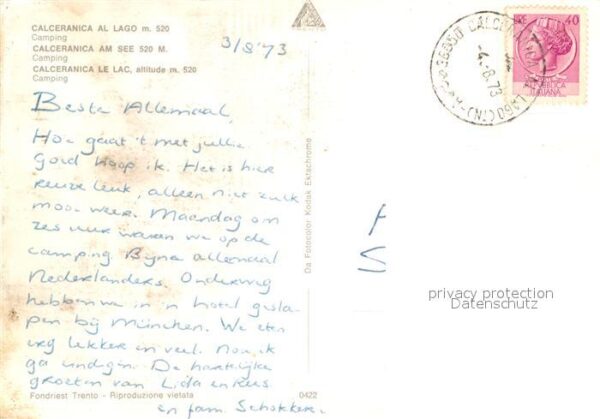 CALCERANICA AL LAGO m. 520
Camping
CALCERANICA AM SEE 520 M.
Camping
CALCERANICA LE LAC, altitude m. 520
Camping
3/8'73
Beste Allemaal,
Hoe gaat 't met jullie.
Goed hoop ik. Het is hier
reuze leuk, alleen niet zulk
mooi weer. Maandag om
zes uur waren we op de
camping. Bijna allemaal
Nederlanders. Onderweg
hebben we in 'n hotel gesla-
pen bij München. We eten
erg lekker en veel. Nou ik
ga eindigen. De hartelijke
groeten van Lida en Kees
en fam. Schokker.
Fondriest Trento - Riproduzione vietata
0422
Da Fotocolor Kodak Ektachrome
38050 CALCERANICA AL LAGO (TN)
-4.-8.73
40
REPUBBLICA
ITALIANA
privacy protection
Datenschutz